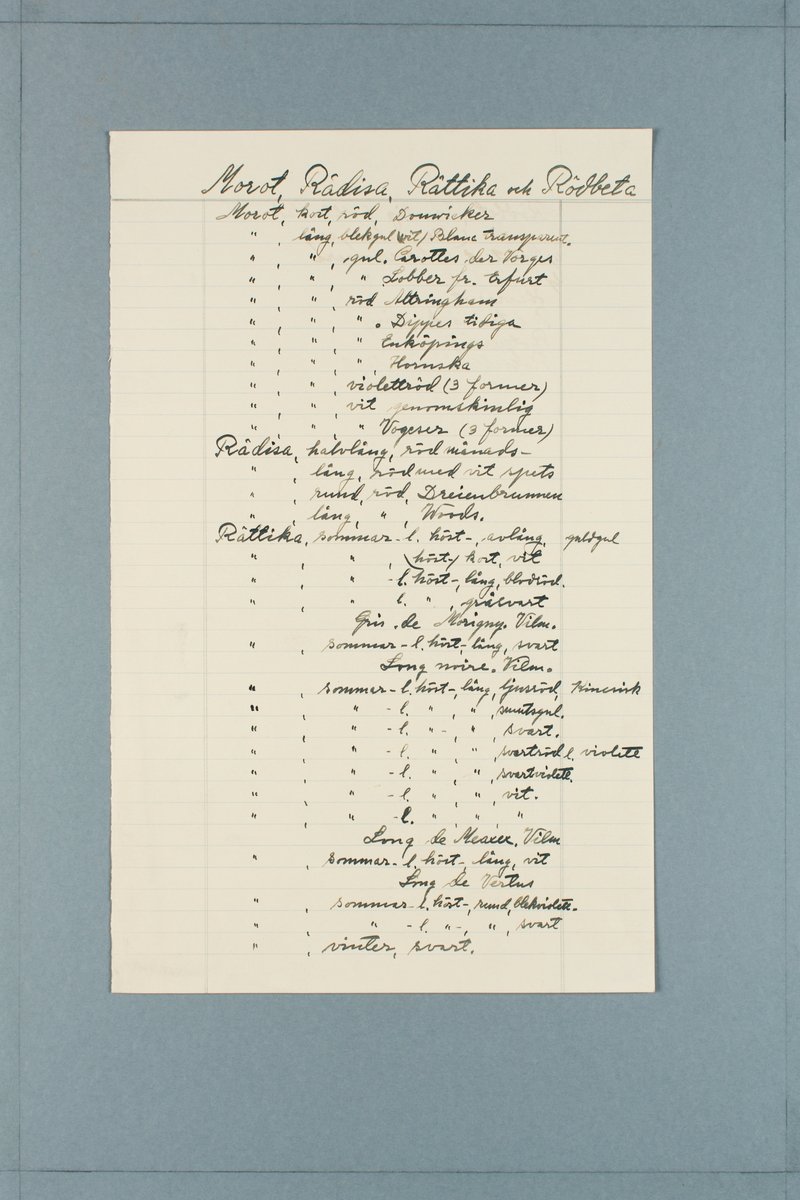 Morot, Rädisa, Rättika och Rödbeta
Morot, kort, röd, Douwicker
" , lång, blekgul (vit) Blanc transparent.
" , " , gul. Carottes der Vorges
" , " , " Lobber fr. Erfurt
" , " , röd Altringham
" , " , " . Dippes tidiga
" , " , " Enköpings
" , " , " , Hornska
" , " , violettröd (3 former)
" , " , vit genomskinlig
" , " , " Vogeser (3 former)
Rädisa, halvlång, röd månads-
" , lång, röd med vit spets
" , rund, röd, Dreienbrunnen
" , lång, " , Woods.
Rättika, sommar- l. höst-, avlång, guldgul
" , " , (höst-) kort, vit
" , " -l. höst-, lång, blodröd.
" , " l. " , gråsvart
Gris de Morigny. Vilm.
" , sommar- l. höst- lång, svart
Long noire. Vilm.
" , sommar- l. höst-, lång, ljusröd, Kinesisk
" , " -l. " , " , smutsgul.
" , " -l. " -, " , svart.
" , " -l. " , " , svartröd l. violett
" , " -l. " , " , svartviolett.
" , " -l. " , " , vit.
" , " -l. " , " , "
Long de Meaxer. Vilm
" , sommar- l. höst-, lång, vit
Long de Vertus
" , sommar- l. höst-, rund, blekviolett.
" , " -l. " -, " , svart
" , vinter, svart.